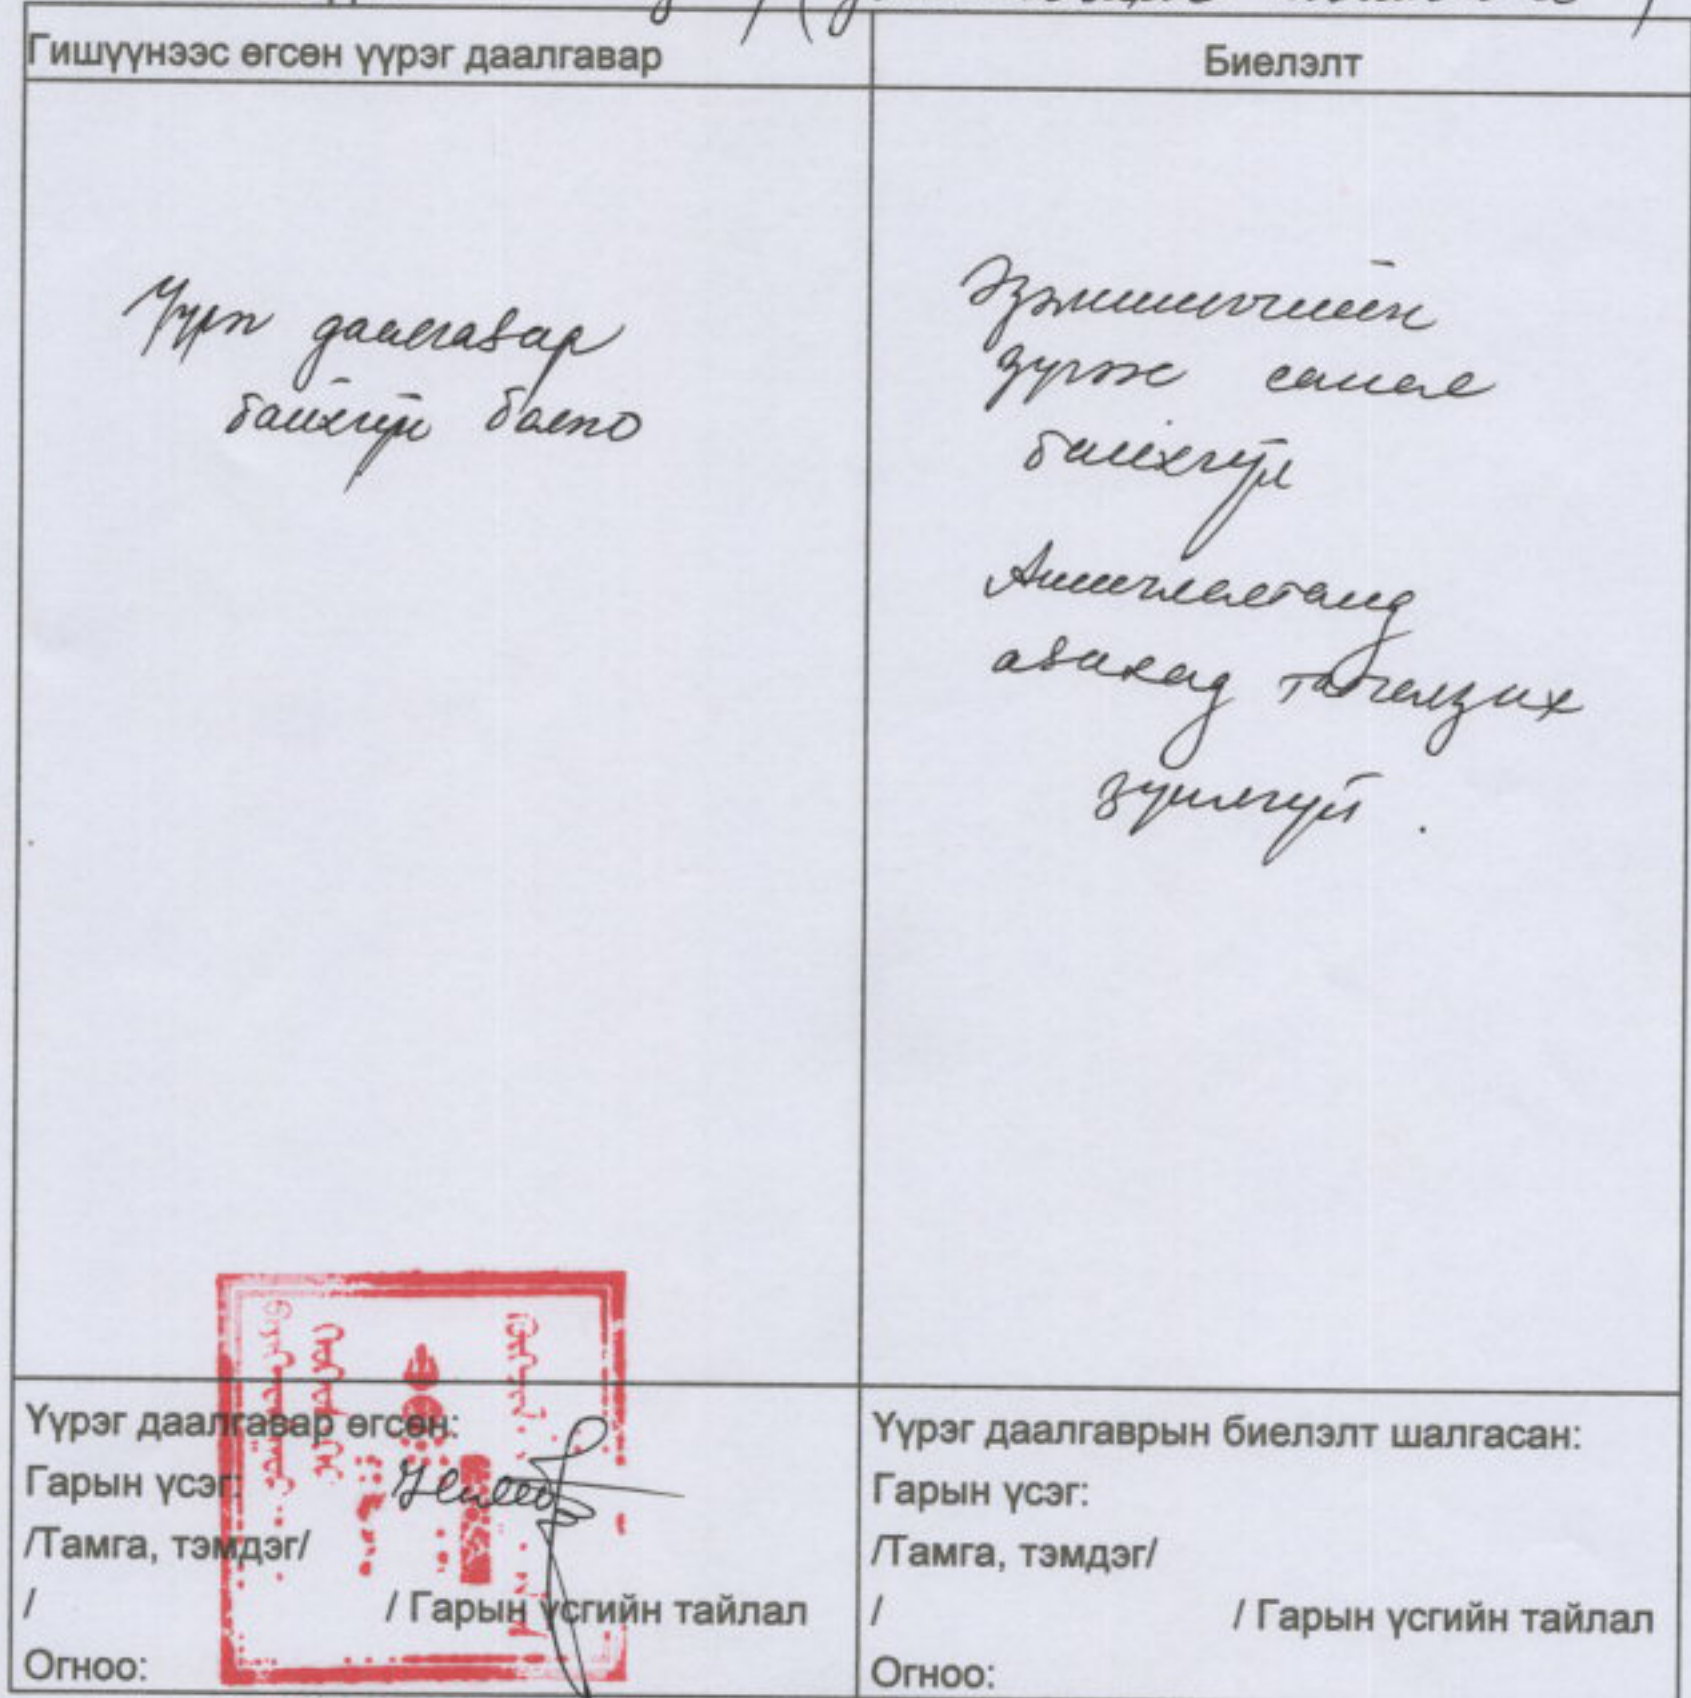 Гишүүнээс өгсөн үүрэг даалгавар
Биелэлт
Үүрэг даалгавар
байхгүй болно
Эзэмшигчийн
зүгээс санал
байхгүй
Ашиглалтанд
авахад татгалзах
зүйлгүй.
Үүрэг даалгавар өгсөн:
Гарын үсэг:
/Тамга, тэмдэг/
/ / Гарын үсгийн тайлал
Огноо:
Үүрэг даалгаврын биелэлт шалгасан:
Гарын үсэг:
/Тамга, тэмдэг/
/ / Гарын үсгийн тайлал
Огноо: